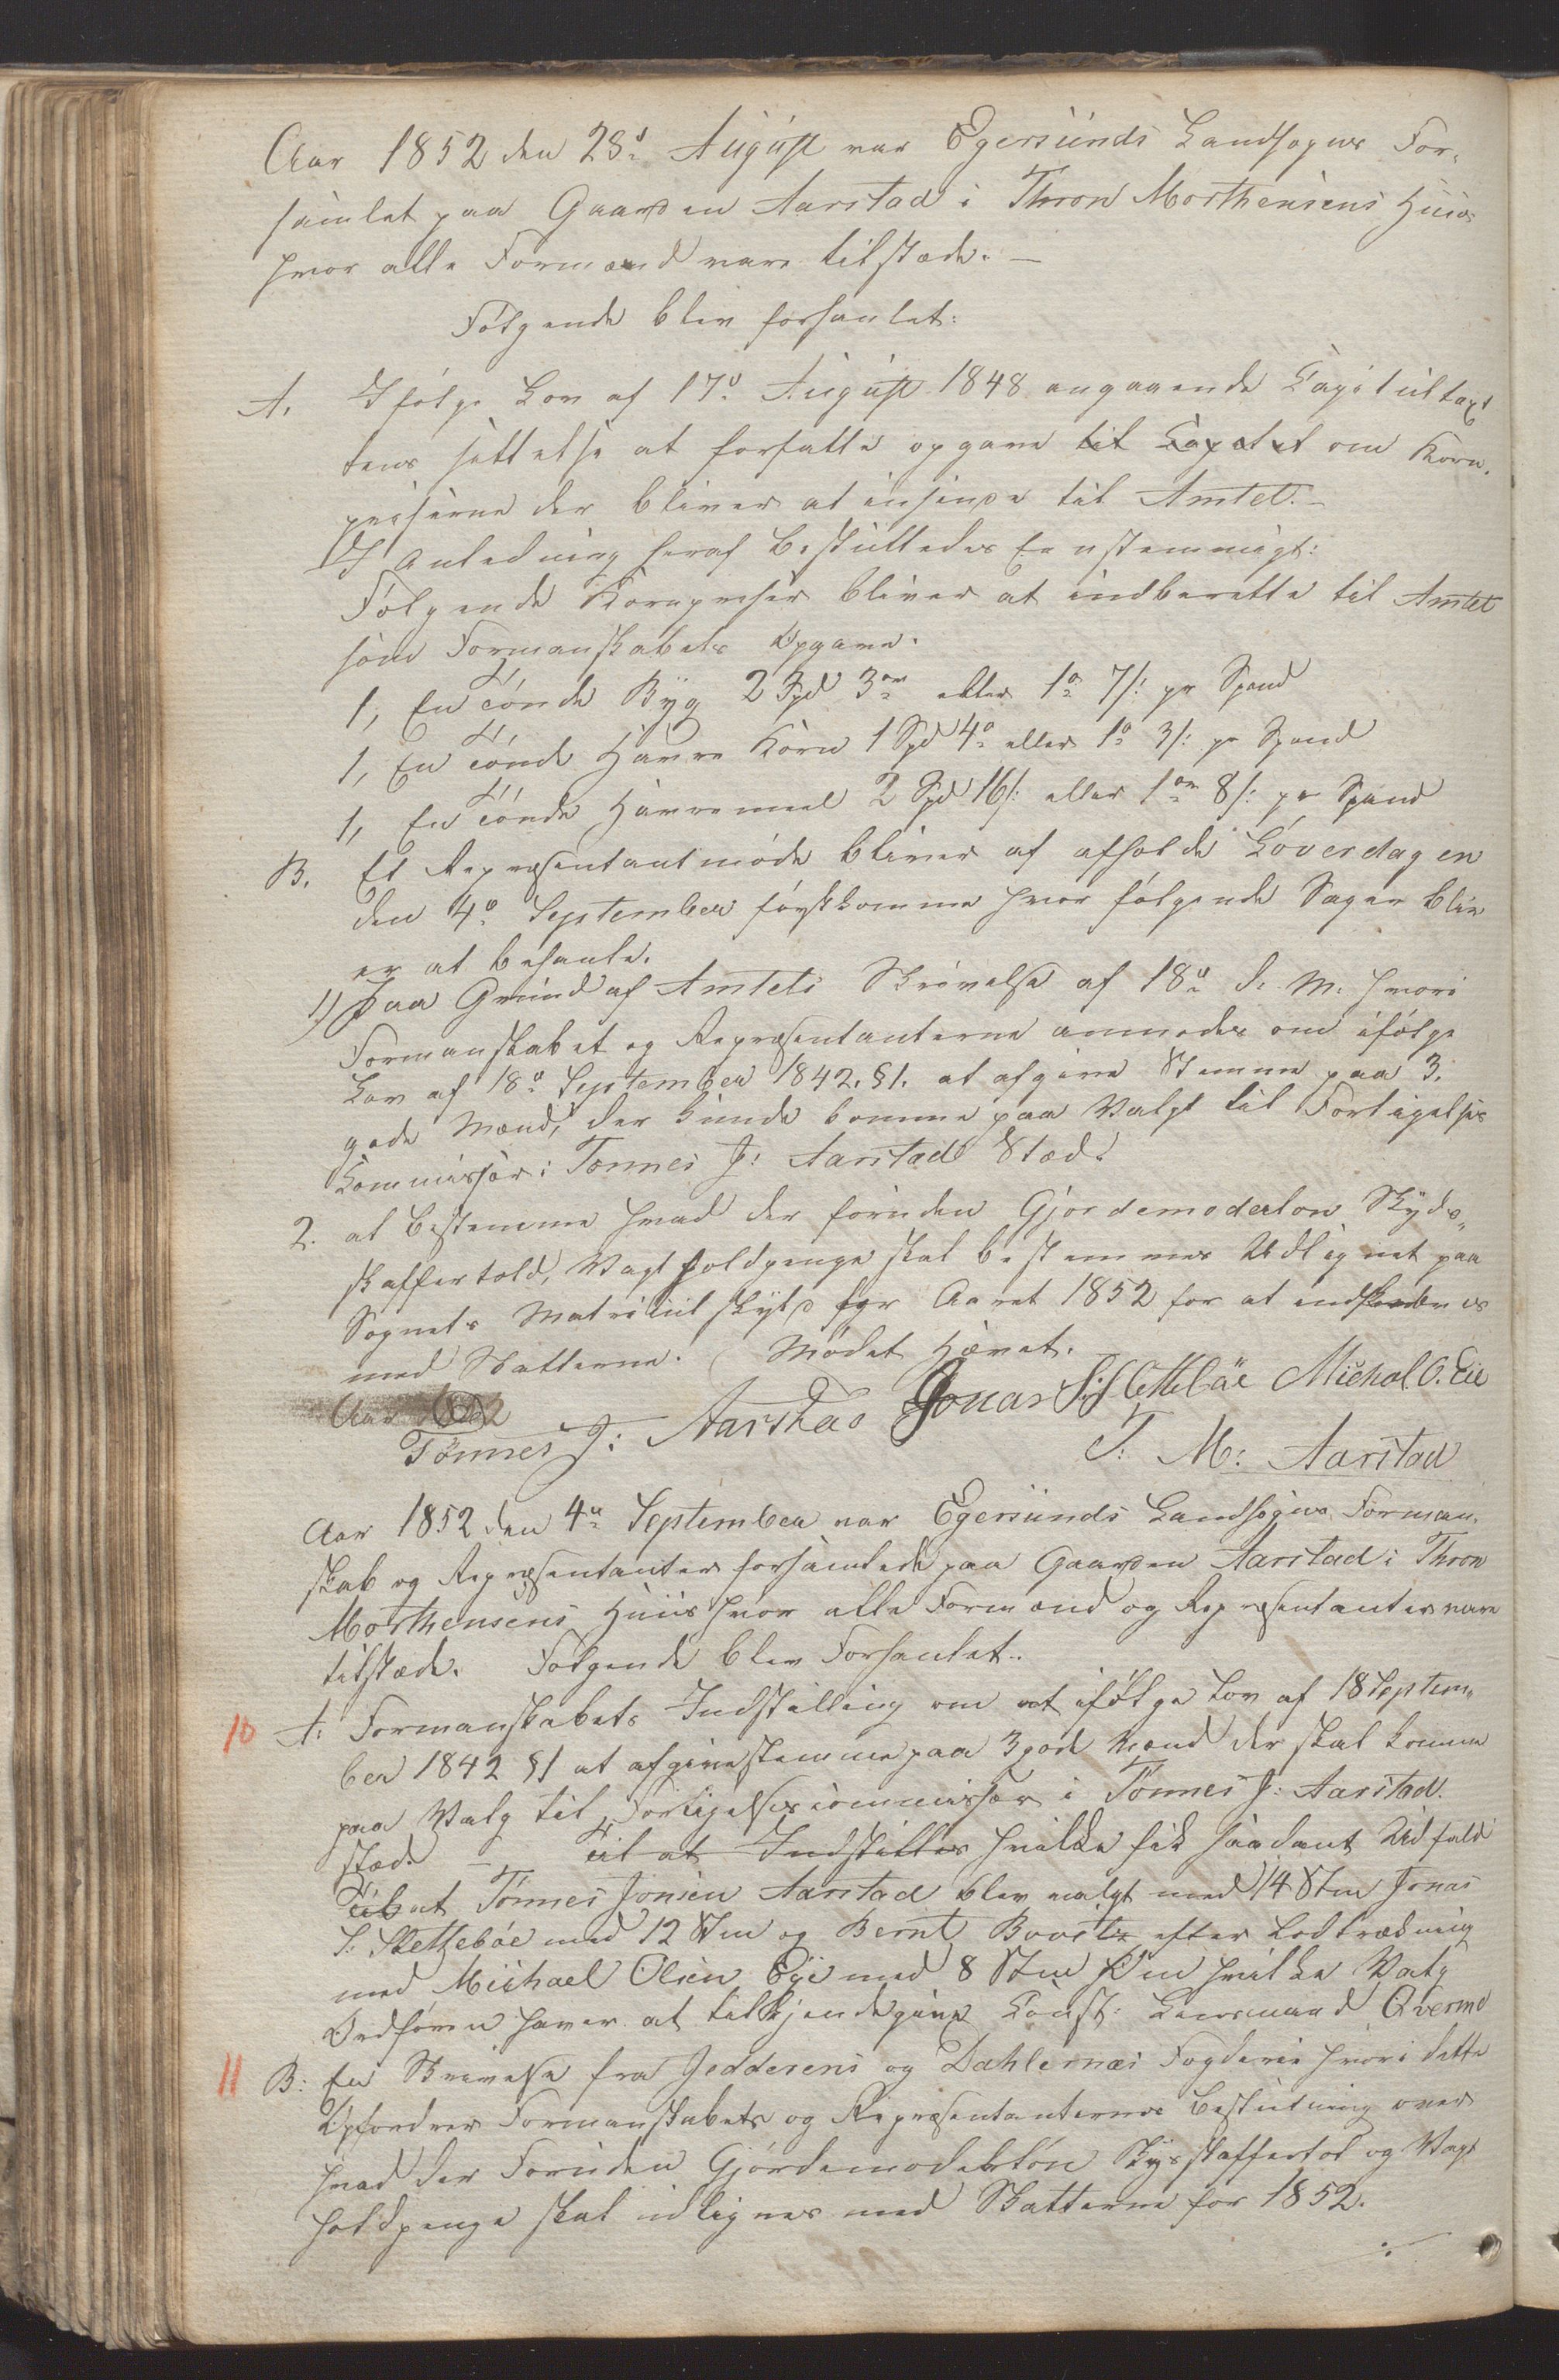 Aar 1852 den 28de August var Egersunds Landsogns For-
samlet paa Gaarden Aarstad i Thron Morthensens Huus
hvor alle Formænd vare tilstæde. —
Følgende blev forhanlet:
A. Ifølge Lov af 17de August 1848 angaaende Capitultaxt
tens settelse at forfatte opgave til Capitel om Korn-
priserne der bliver at insende til Amtet. —
I Anledning heraf besluttedes Eenstemmigt:
Følgende Kornpriser bliver at indberette til Amtet
som Formanskabets Opgave.
1, En Tønde Byg 2 Spd 3 ort eller 1 o 7 s: pr Spand
1, En Tønde Havre Korn 1 Spd 4 o eller 1 o 3 s: pr Spand
1, En Tønde Havremeel 2 Spd 16 s: eller 1 ort 8 s: pr Spand
B. Et Repræsentantmøde bliver af afholde Løverdagen
den 4de September førstkomme hvor følgende Sager bliv
er at behanle.
1) Paa Grund af Amtets Skrivelse af 18de d. M. hvori
Formanskabet og Repræsentanterne anmodes om ifølge
Lov af 18de September 1842. §1. at afgive Stemme paa 3.
gode Mænd, der kunde komme paa Valgt til Forligelses
Commissær i Tønnes J: Aarstad Stæd.
2. at bestemme hvad der foruden Gjordemoderløn Skyds-
skaffertold, Vagtholdpenge skal bestemmes Udlignet paa
Sognets Matrikul skyld for Aaret 1852 for at indkræves
med Skatterne. Mødet Hævet.
Aar 1852
Tønnes J: Aarstad Jonas S: Slettebøe Michal O. Eie
T: M: Aarstad
Aar 1852 den 4de September var Egersunds Landsogns Forman-
skab og Repræsentanter forsamlede paa Gaarden Aarstad i Thron
Morthensens Huus hvor alle Formænd og Repræsentanter vare
tilstæde. Følgende blev Forhanlet..
10 A: Formanskabets Indstilling om at ifølge Lov af 18 Septem-
ber 1842 §1 at afgive stemme paa 3 gode Mænd der skal komme
paa Valg til Forligelsescommissær i Tønnes J: Aarstad.
stæd. — Til at Indstilles hvilke fik saadant Udfald
Til at Tønnes Jonsen Aarstad blev valgt med 14 Stm Jonas
S: Slettebøe med 12 Stm og Bernt efter Lodtrækning
med Michael Olsen Eye med 8 Stm hvilke Valg
Ordføren haver at tilkjendegive Const: Lensmand Qverme
11 B: En Skrivelse fra Jedderens og Dahlernes Fogderie hvori dette
Opfordrer Formanskabets og Repræsentanternes beslutning over
hvad der Foruden Gjørdemoderløn Skydsskaffertol og Vagt
holdpenge skal udlignes med Skatterne for 1852.